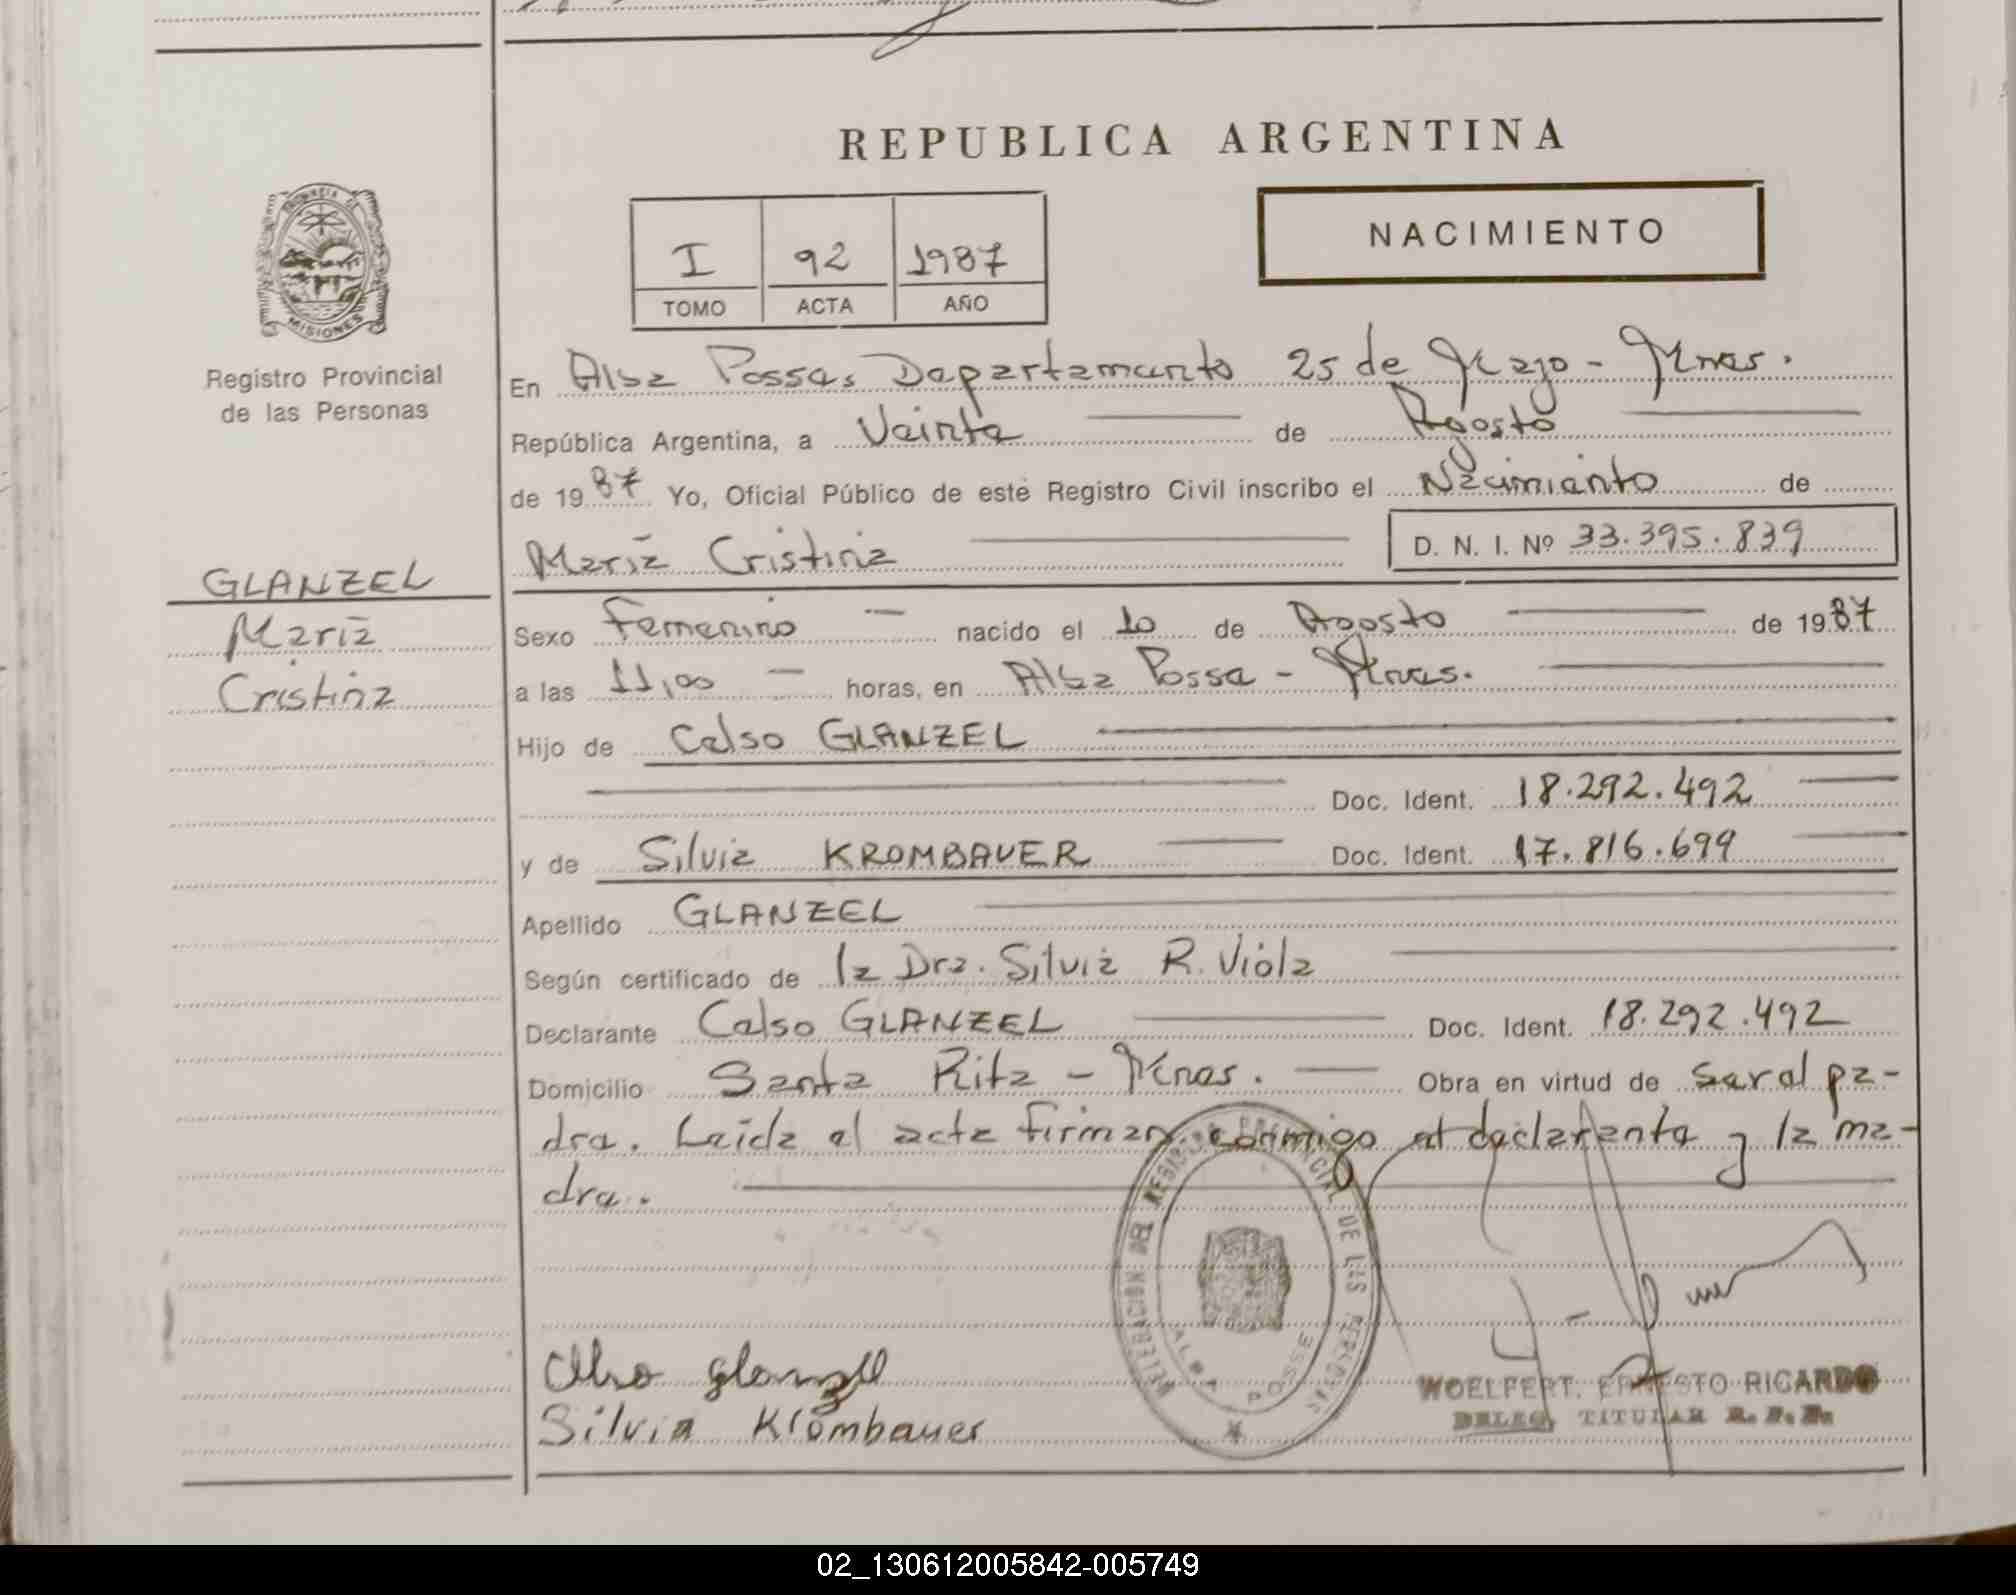 REPUBLICA ARGENTINA
NACIMIENTO
I 92 1987
TOMO ACTA AÑO
PROVINCIA DE
MISIONES
Registro Provincial
de las Personas
GLANZEL
María
Cristina
En Alba Posse, Departamento 25 de Mayo - Mnes.
República Argentina, a Veinte de Agosto
de 1987 Yo, Oficial Público de este Registro Civil inscribo el Nacimiento de
María Cristina D. N. I. Nº 33.395.839
Sexo Femenino nacido el 10 de Agosto de 1987
a las 11,00 horas, en Alba Posse - Mnes.
Hijo de Celso GLANZEL
Doc. Ident. 18.292.492
y de Silvia KROMBAUER Doc. Ident. 17.816.699
Apellido GLANZEL
Según certificado de la Dra. Silvia R. Viola
Declarante Celso GLANZEL Doc. Ident. 18.292.492
Domicilio Santa Rita - Mnes. Obra en virtud de ser el pa-
dre. Leída el acta firman conmigo el declarante y la ma-
dre.
DELEGACION DEL REGISTRO PROVINCIAL DE LAS PERSONAS
ALBA POSSE
glanzel
Silvia Krombauer
WOELFERT. ERNESTO RICARDO
DELEG. TITULAR R. P. P.
02_130612005842-005749